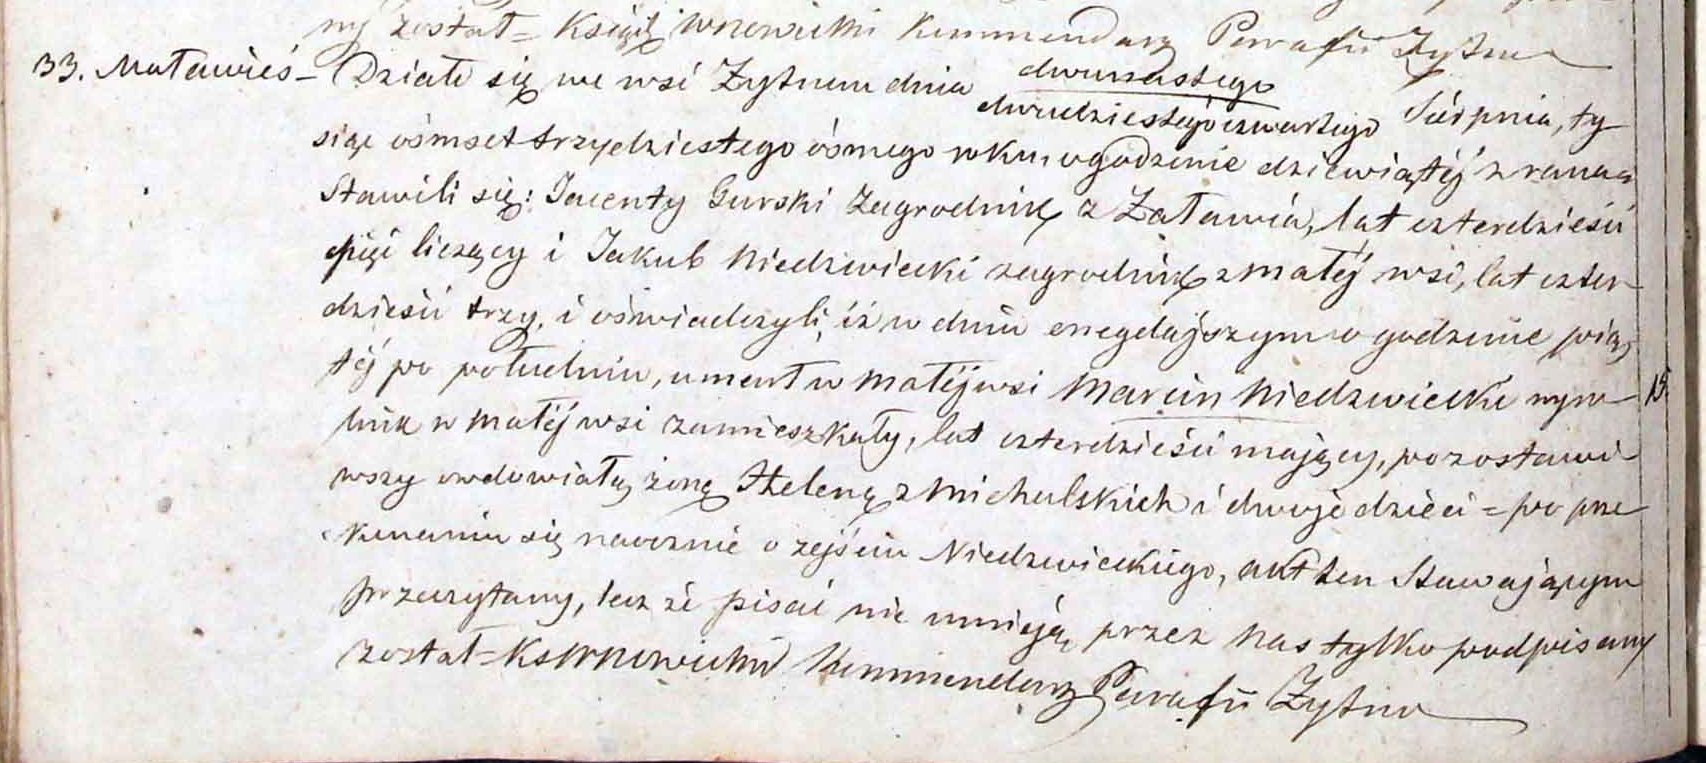 ny został = Ksiądz Wnowiecki Kommendarz Parafii Żytno
33. Mała wieś – Działo się we wsi Żytnem dnia dwunastego
dwudziestego czwartego Sierpnia, ty
siąc ośmset trzydziestego ósmego roku o godzinie dziewiątéj z rana
Stawili się: Jacenty Gurski Zagrodnik z Załawia, lat czterdzieści
pięć liczący i Jakub Niedzwiecki zagrodnik z Małéj wsi, lat czter
dzieści trzy, i oświadczyli, iż w dniu onegdajszym o godzinie pią
téj po południu, umarł w Małéj wsi Marcin Niedzwiecki wyro
bnik w Małéj wsi zamieszkały, lat czterdzieści mający, pozostawi
wszy owdowiałą żonę Helenę z Michalskich i dwoje dzieci = po prze
konaniu się naocznie o zejściu Niedzwieckiego, akt ten Stawającym
przeczytany, lecz że pisać nie umieją, przez nas tylko podpisany
został = Ks Wnowiecki Kommendarz Parafii Żytno